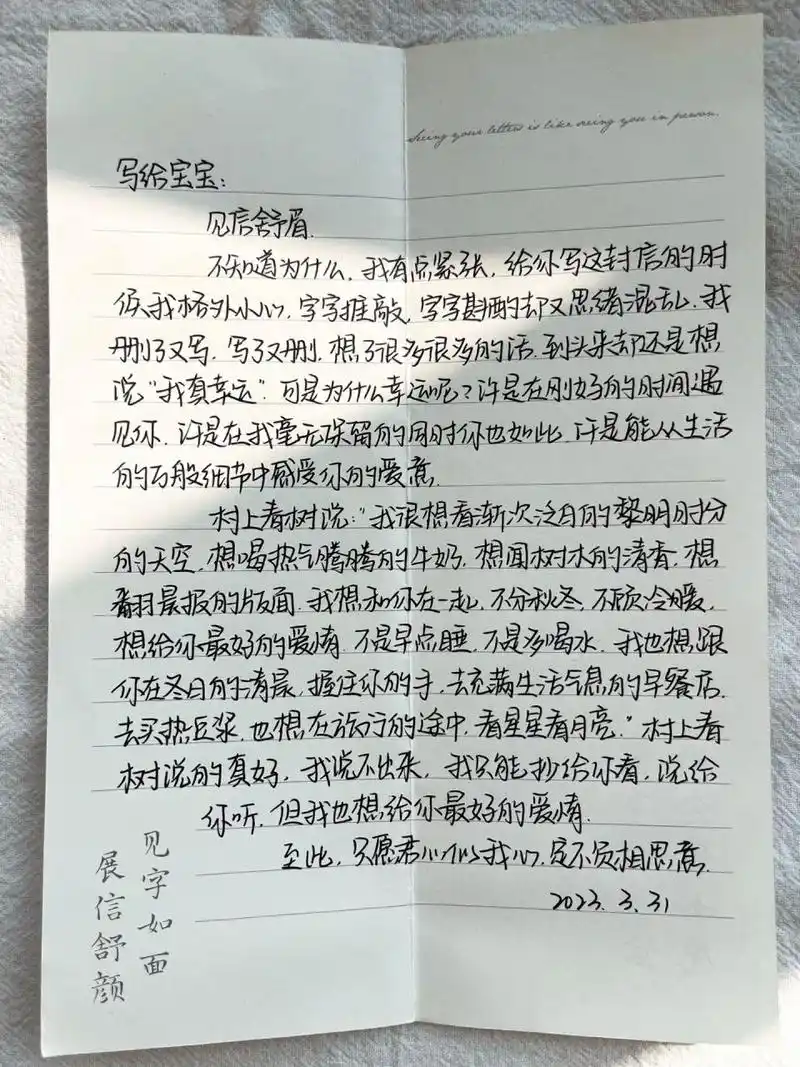 Seeing your letters is like seeing you in person.
写给宝宝：
见信舒眉.
不知道为什么，我有点紧张，给你写这封信的时
候，我格外小心，字字推敲，字字斟酌却又思绪混乱.我
删了又写，写了又删，想了很多很多的话，到头来却还是想
说“我真幸运”.可是为什么幸运呢？许是在刚好的时间遇
见你，许是在我毫无保留的同时你也如此，许是能从生活
的百般细节中感受你的爱意.
村上春树说：“我很想看渐次泛白的黎明时分
的天空，想喝热气腾腾的牛奶，想闻树木的清香，想
翻晨报的版面.我想和你在一起，不分秋冬，不顾冷暖，
想给你最好的爱情.不是早点睡，不是多喝水，我也想跟
你在冬日的清晨，握住你的手，去充满生活气息的早餐店.
去买热豆浆，也想在旅行的途中，看星星看月亮.”村上春
树说的真好，我说不出来，我只能抄给你看，说给
你听，但我也想给你最好的爱情.
至此，只愿君心似我心，定不负相思意.
2023.3.31
见字如面
展信舒颜